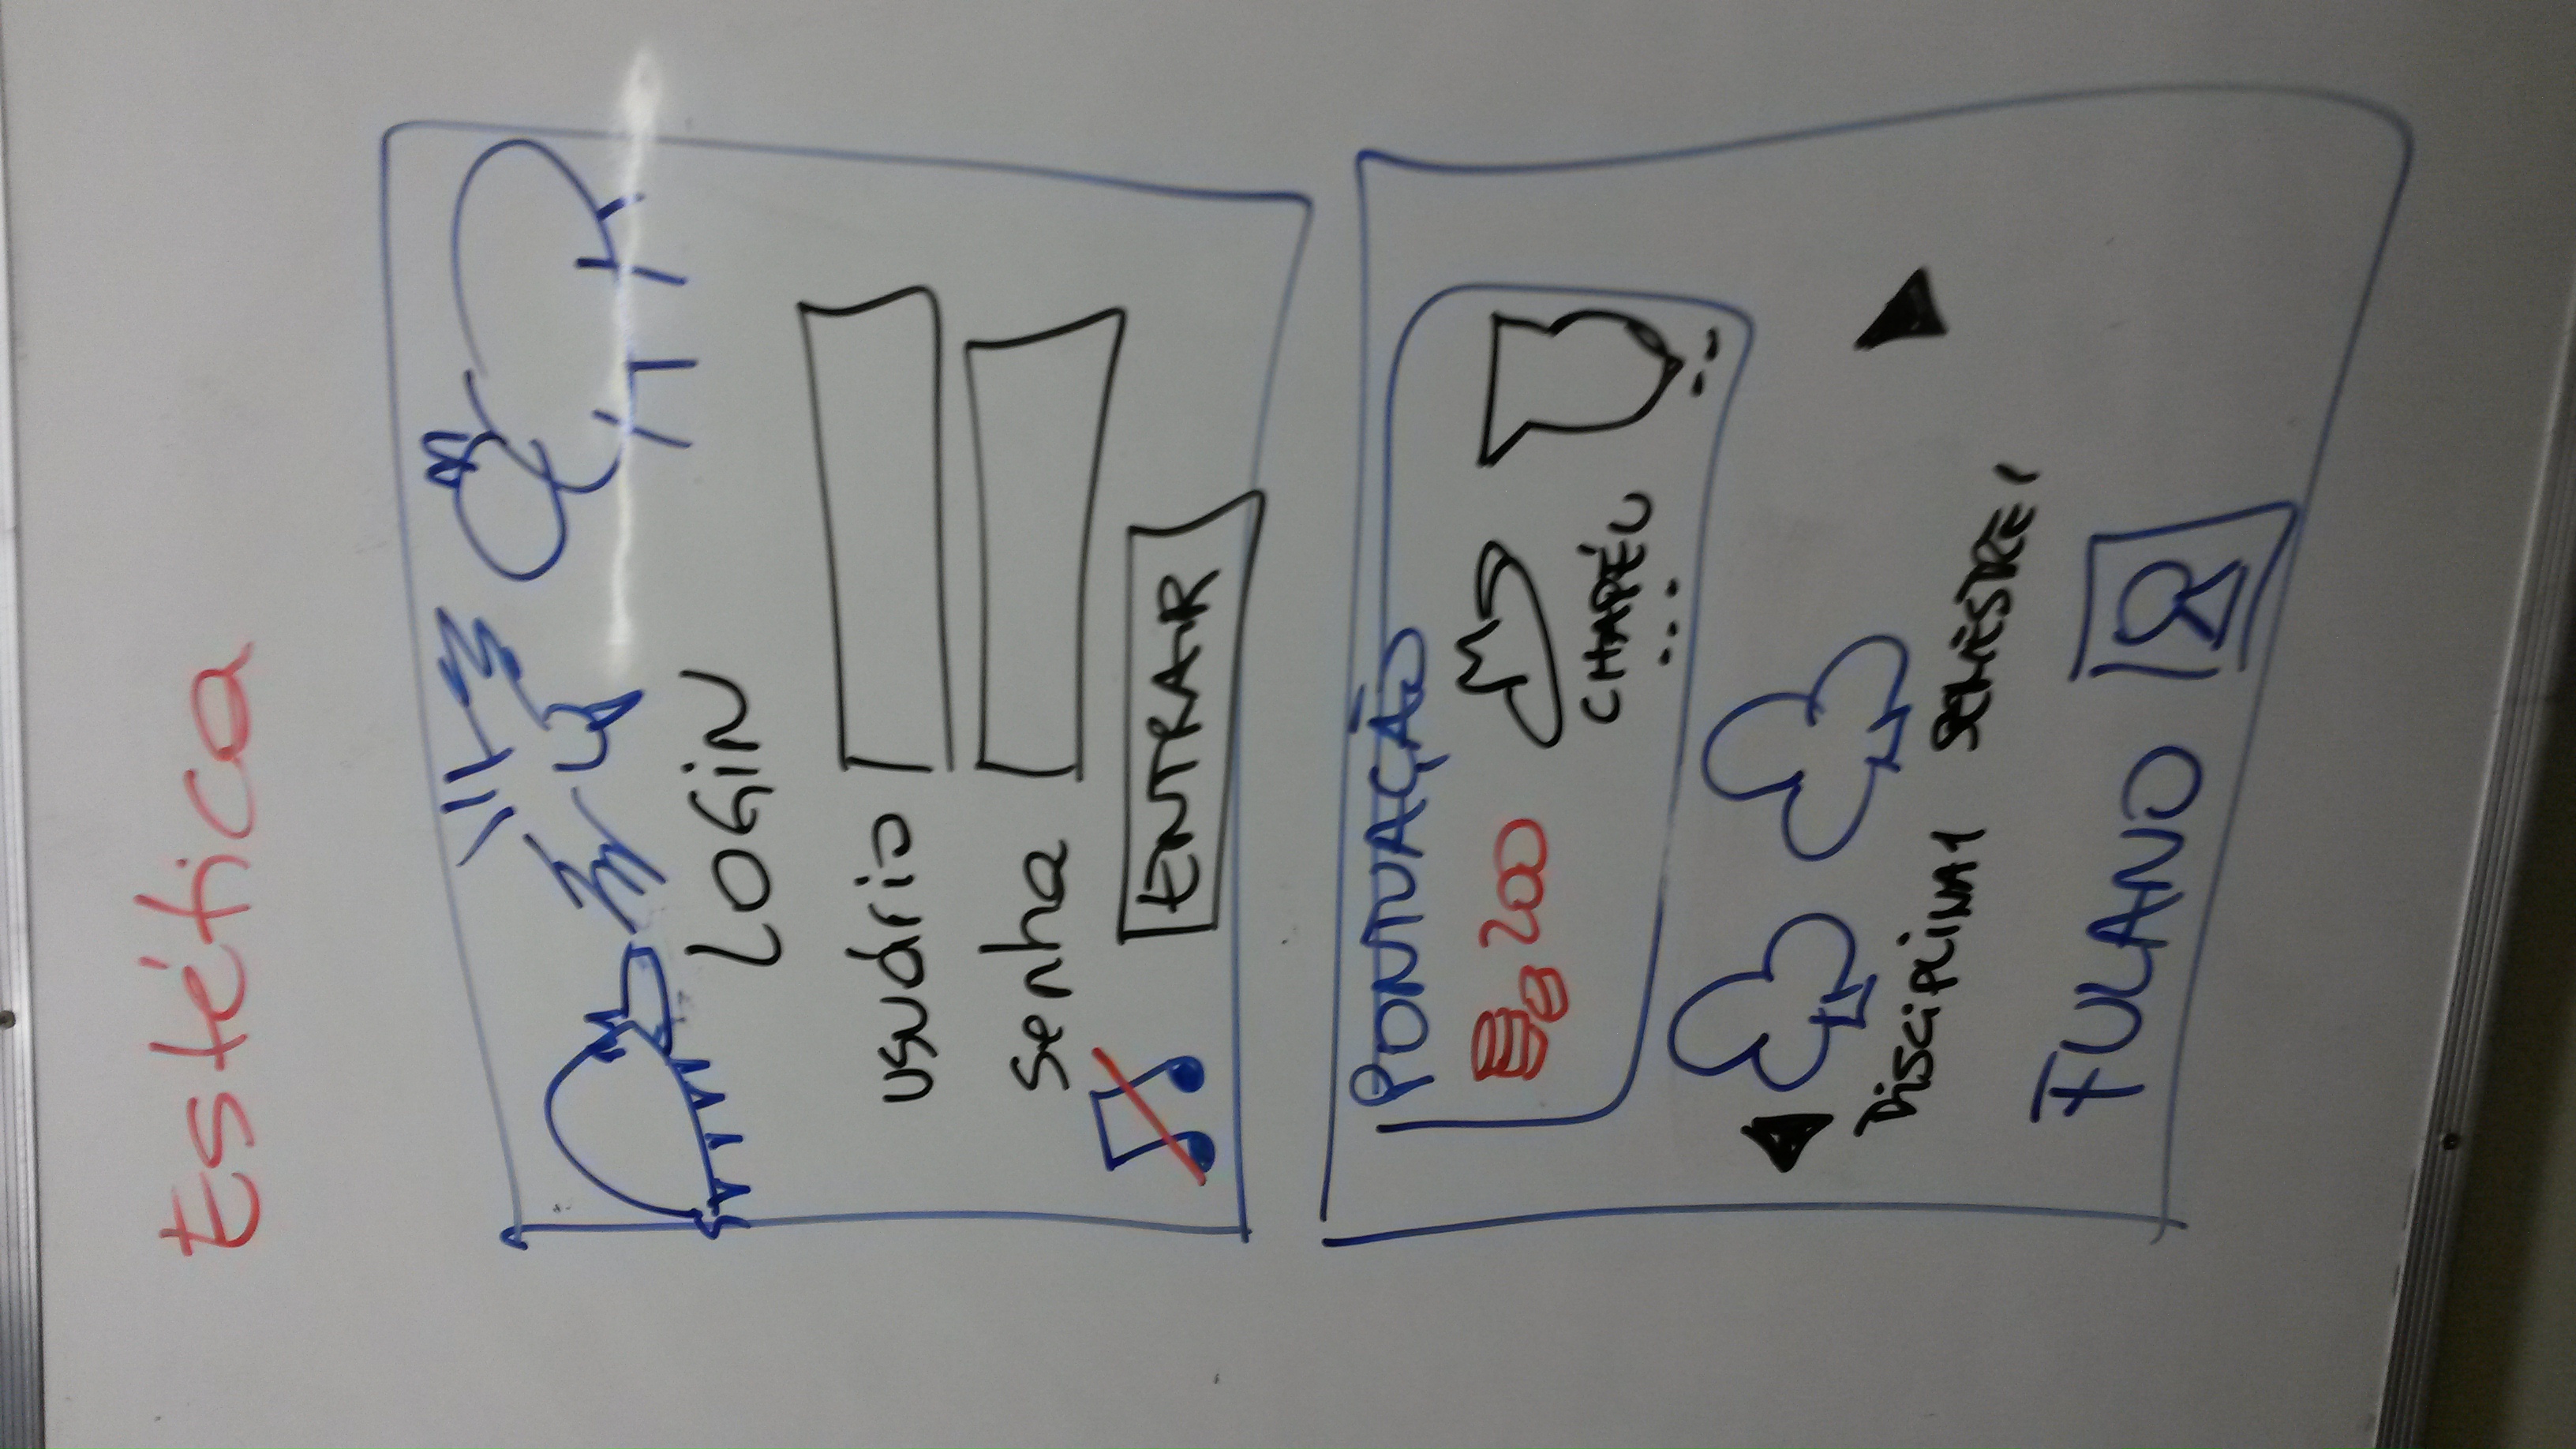 Estética
LOGiN
usuário
senha
ENTRAR
PONTUAÇÃO
200
CHAPÉU
...
DisciPLiNA1 SEMESTRE1
FULANO